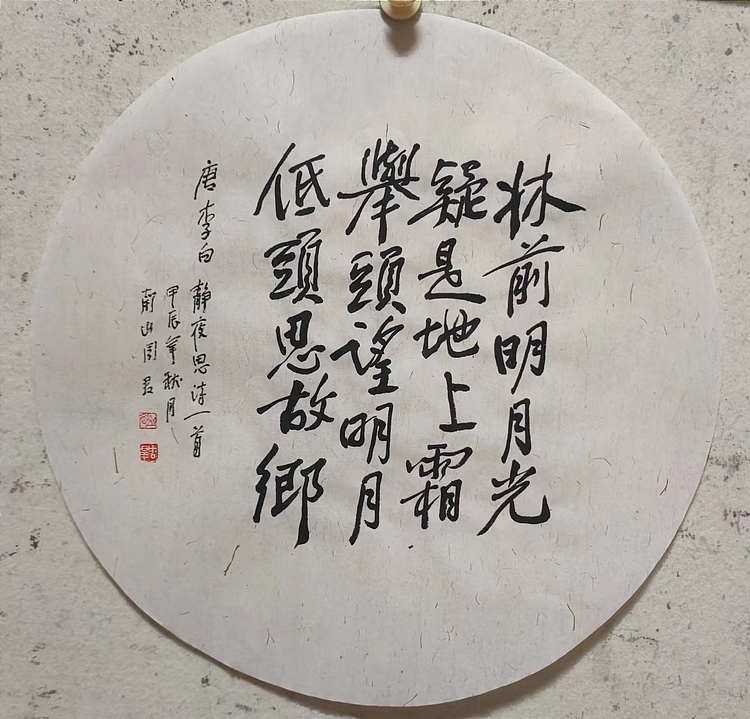 牀前明月光
疑是地上霜
舉頭望明月
低頭思故鄉
唐李白靜夜思詩一首
甲辰年秋月
南山周君